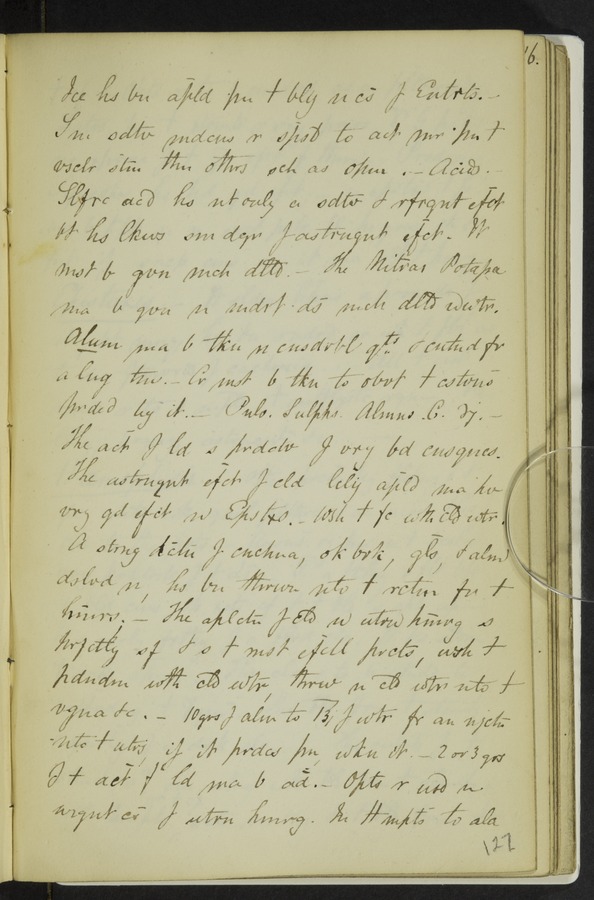 16.
Ice hs bn apld pn t bly n cs f Entrts. –
Sm sdtv mdcns r spsd to act mr pn t
vsclr stm thn othrs sch as opm . – Acids. –
Slfrc acd hs nt only a sdtv & rfrgnt efct
bt hs lkws sm dgr f astrngnt efct – It
mst b gvn mch dltd. – The Nitras Potassa
ma b gvn n mdrt ds mch dltd wtr.
Alum ma b tkn n cnsdrbl qts. & cntnd fr
a lng tm. – Cr mst b tkn to obvt t costvns
prdcd by it. – Pulv. Sulphs. Almns. C. –
The act f ld s prdctv f vry bd cnsqncs.
The astrngnt efct f cld lcly apld ma hv
vry gd efct n Epstxs. – wsh t fc wth cld wtr.
A strng dctn f cnchna, ok brk, gls, & alm
dslvd n, hs bn thrwn nto t rctm fr t
hmrs. – The aplctn f cld n utrn hmrg s
prfctly sf & s t mst efcll prcts, wsh t
pdndm wth cld wtr, thrw n cld wtr nto t
vgna &c. – 10 grs f alm to f wtr fr an njctn
nto t utrs, if it prdcs pn, wkn it. – 2 or 3 grs
f t act f ld ma b ad. – Opts r usd n
urgnt cs f utrn hmrg. In tmpts to ala
127